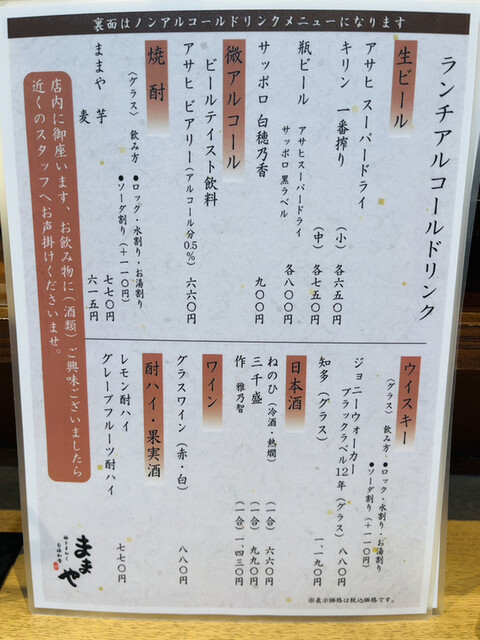 裏面はノンアルコールドリンクメニューになります
ランチアルコールドリンク
生ビール
アサヒ スーパードライ
キリン 一番搾り
(小) 各六五〇円
(中) 各七五〇円
瓶ビール アサヒスーパードライ
サッポロ 黒ラベル
各八〇〇円
サッポロ 白穂乃香 九〇〇円
微アルコール
ビールテイスト飲料
アサヒ ビアリー(アルコール分0.5%) 六六〇円
焼酎
(グラス) 飲み方 ●ロック・水割り・お湯割り
●ソーダ割り(+一一〇円)
芋 七七〇円
ままや 麦 六一五円
店内に御座います、お飲み物に(酒類)ご興味ございましたら
近くのスタッフへお声掛けくださいませ。
ウイスキー
(グラス) 飲み方 ●ロック・水割り・お湯割り
●ソーダ割り(+一一〇円)
ジョニーウォーカー
ブラックラベル12年(グラス) 八八〇円
知多(グラス) 一、一九〇円
日本酒
ねのひ(冷酒・熱燗) (一合) 六六〇円
三千盛 (一合) 九九〇円
作 雅乃智 (一合) 一、四三〇円
ワイン
グラスワイン(赤・白) 八八〇円
酎ハイ・果実酒
レモン酎ハイ
グレープフルーツ酎ハイ 七七〇円
ままや
※表示価格は税込価格です。